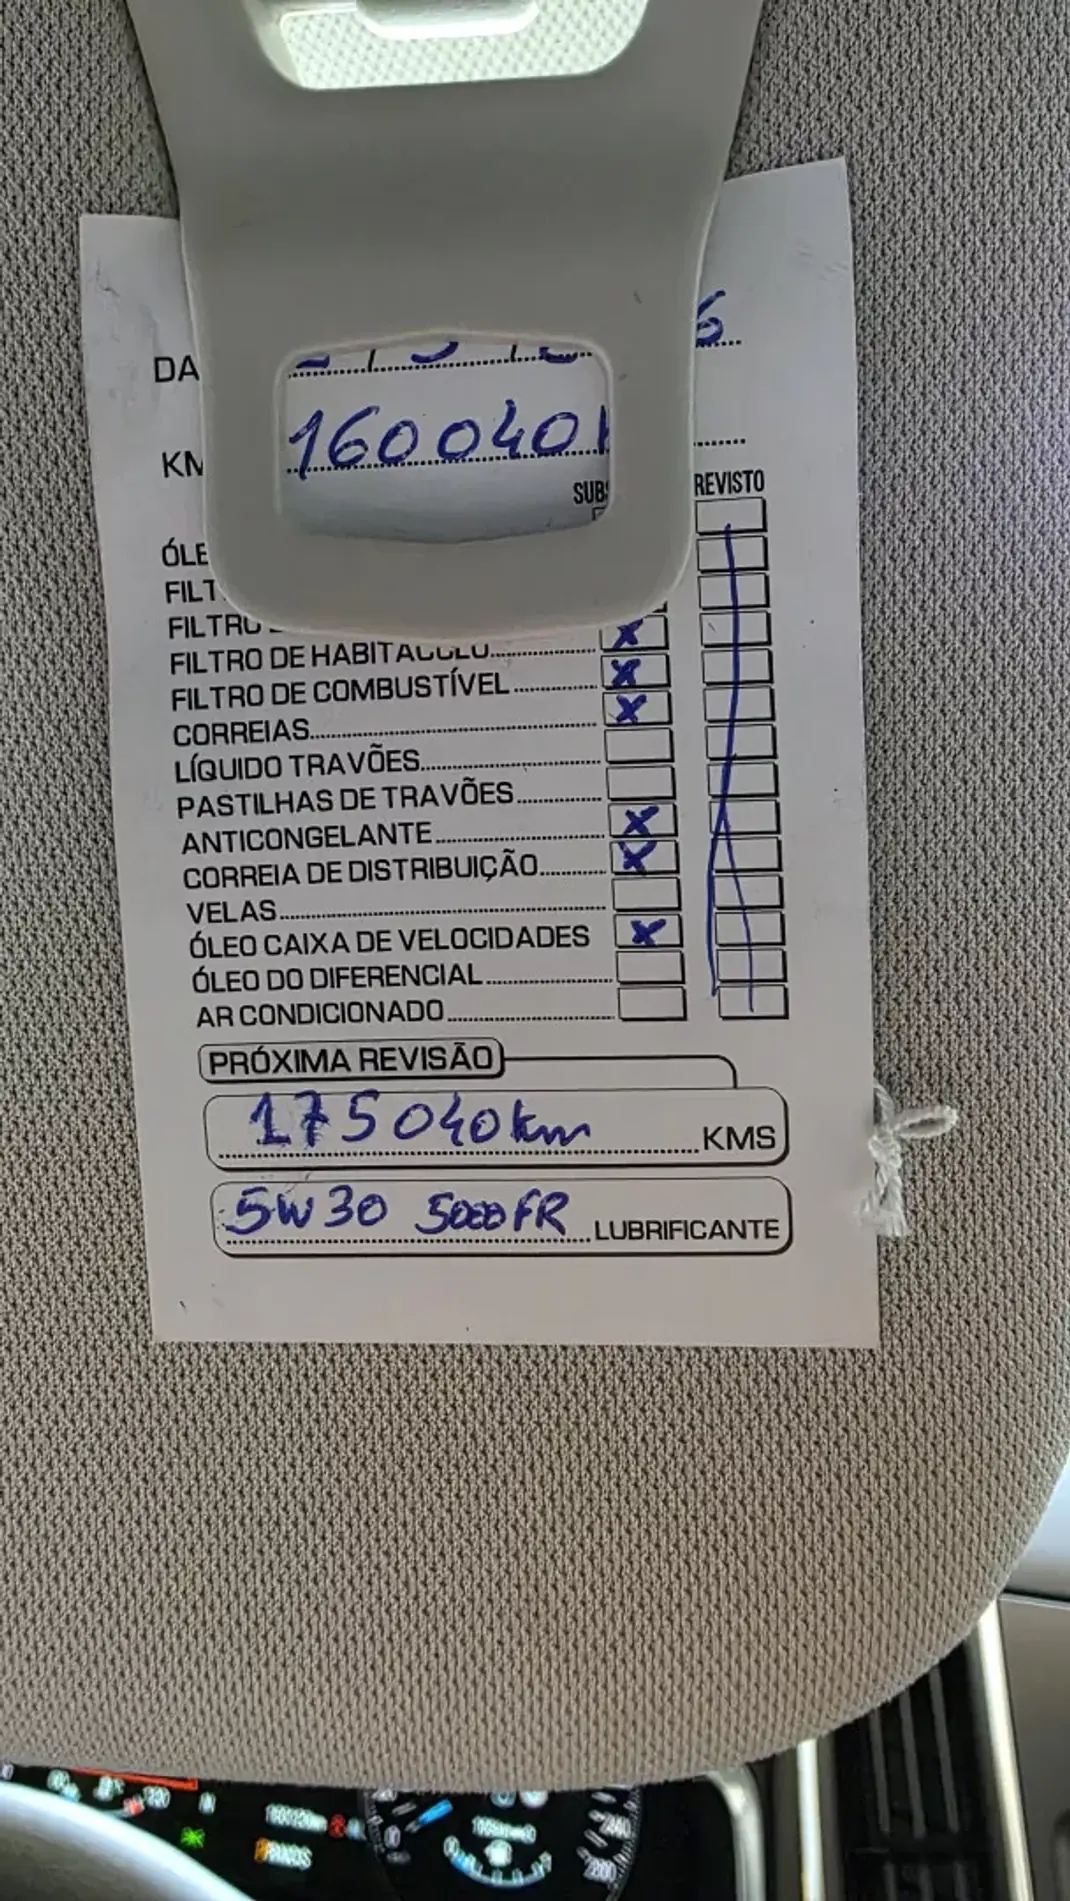 DA
160040
KM
SUBS REVISTO
ÓLE
FILT
FILTRO
FILTRO DE HABITÁCULO
FILTRO DE COMBUSTÍVEL
CORREIAS
LÍQUIDO TRAVÕES
PASTILHAS DE TRAVÕES
ANTICONGELANTE
CORREIA DE DISTRIBUIÇÃO
VELAS
ÓLEO CAIXA DE VELOCIDADES
ÓLEO DO DIFERENCIAL
AR CONDICIONADO
PRÓXIMA REVISÃO
175040km KMS
5W30 5000FR LUBRIFICANTE